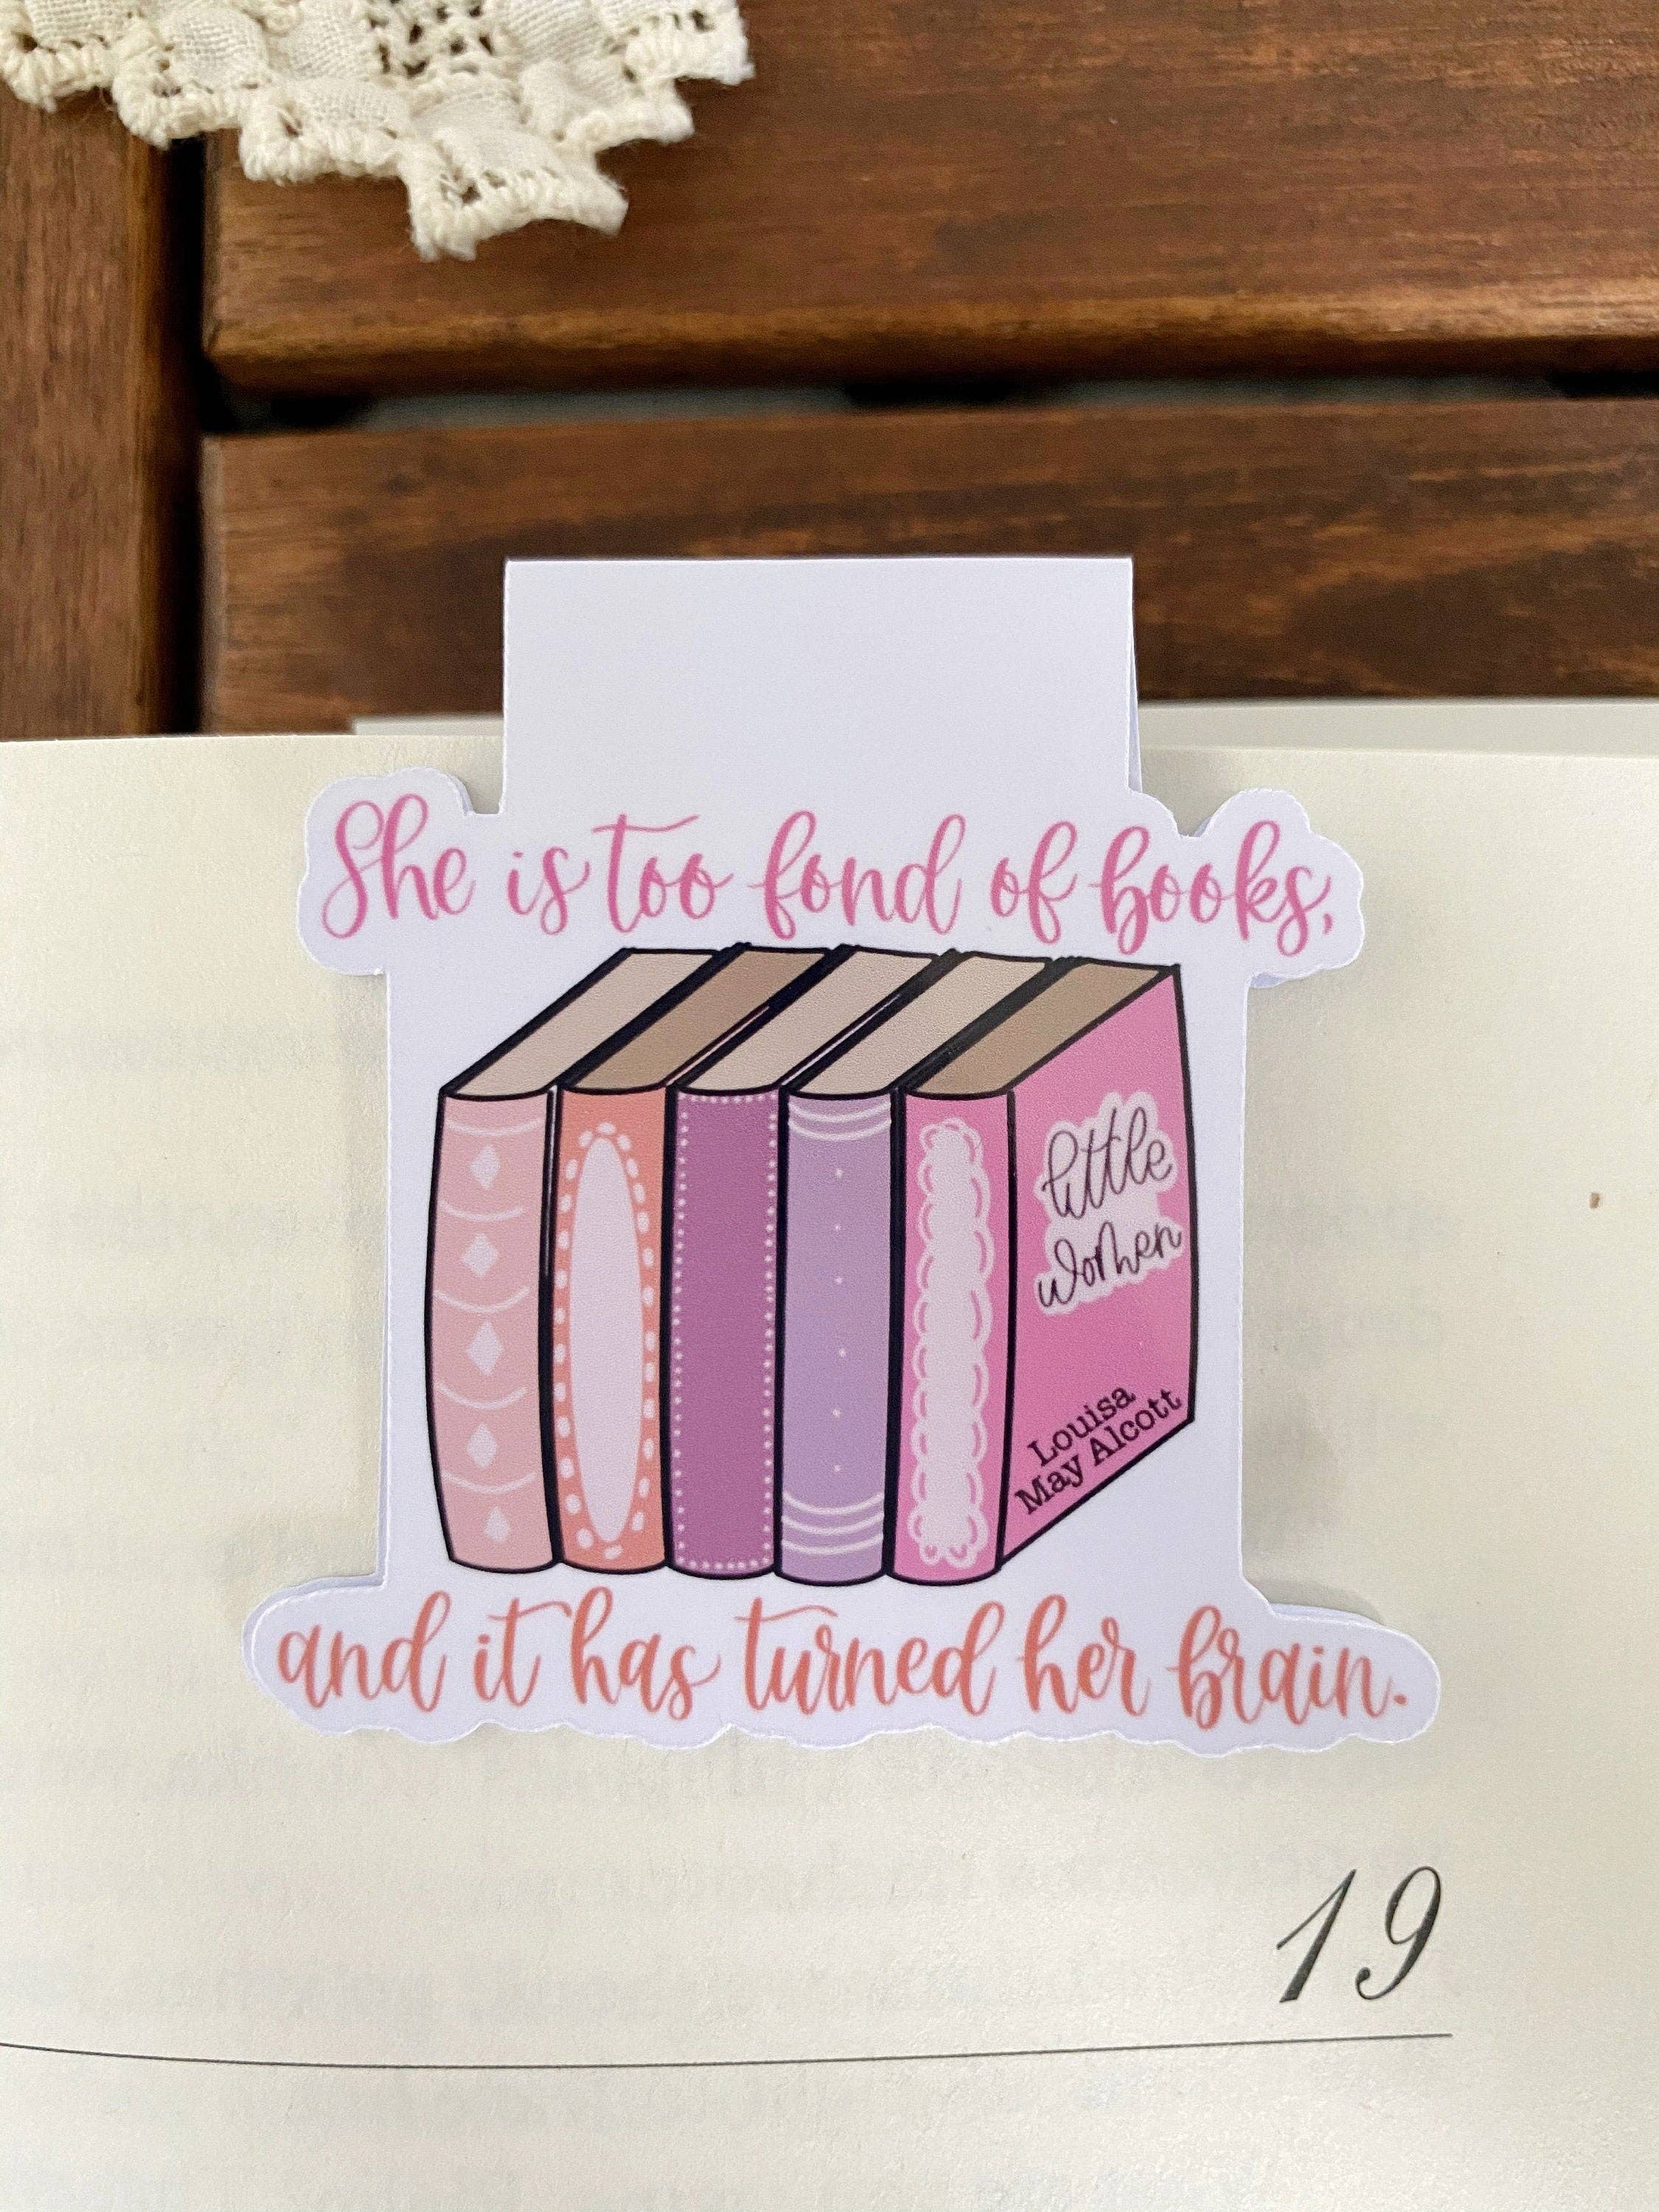 She is too fond of books,
little
women
Louisa
May Alcott
and it has turned her brain.
19